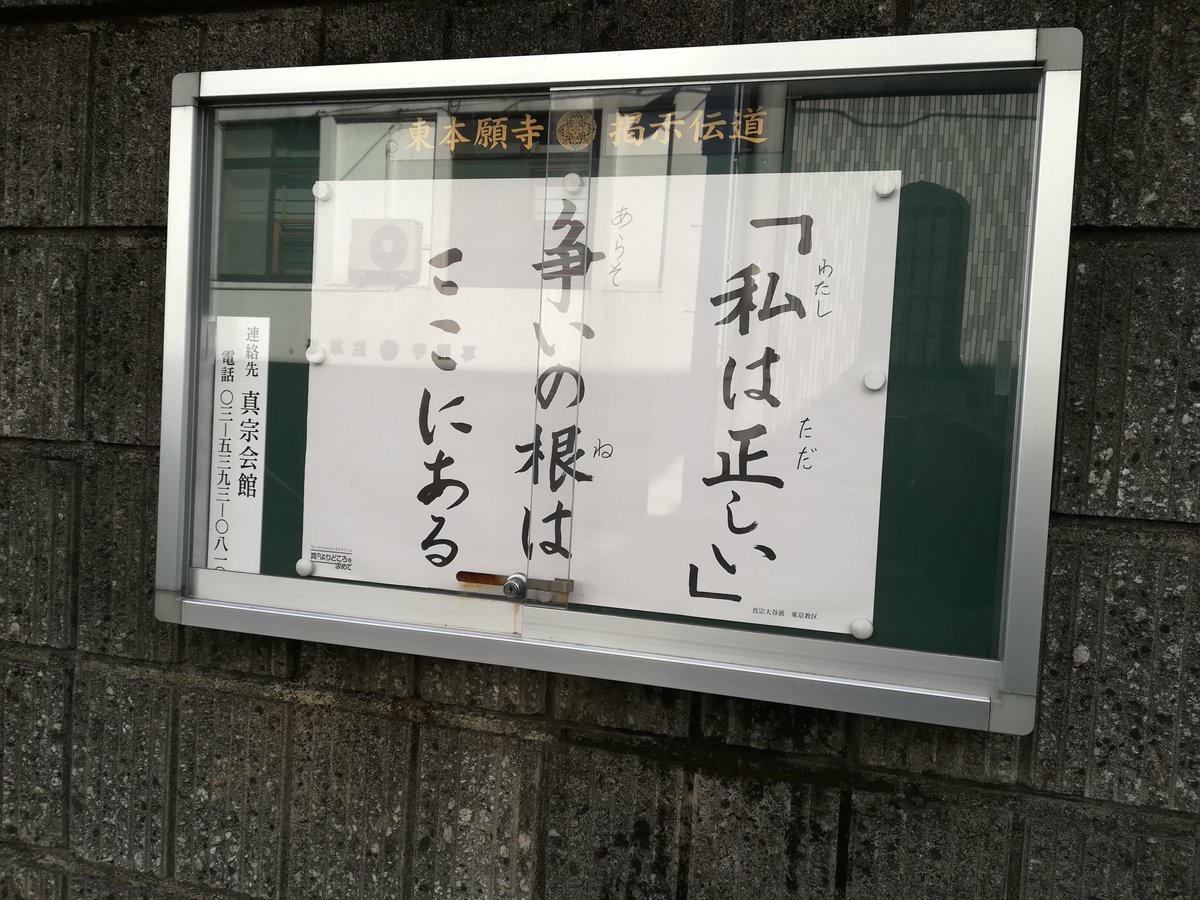 東本願寺 掲示伝道
「私は正しい」
わたし
ただ
争いの根は
あらそ
ね
ここにある
真宗大谷派 東京教区
真のよりどころを
求めて
連絡先 真宗会館
電話 〇三―五三九三―〇八一〇